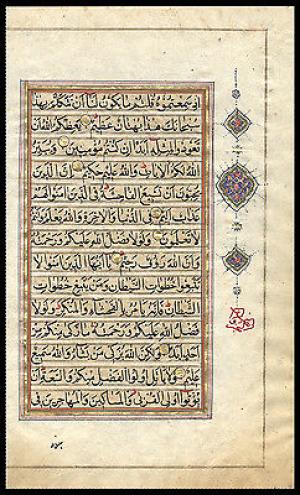 اذ سمعتموه قلتم ما يكون لنا ان نتكلم بهذا
سبحانك هذا بهتان عظيم يعظكم الله ان
تعودوا لمثله ابدا ان كنتم مؤمنين ويبين
الله لكم الايات والله عليم حكيم ان الذين
يحبون ان تشيع الفاحشة في الذين امنوا لهم
عذاب اليم في الدنيا والاخرة والله يعلم وانتم
لا تعلمون ولولا فضل الله عليكم ورحمته
وان الله رؤف رحيم يا ايها الذين امنوا لا
تتبعوا خطوات الشيطان ومن يتبع خطوات
الشيطان فانه يامر بالفحشاء والمنكر ولولا
فضل الله عليكم ورحمته ما زكى منكم من
احد ابدا ولكن الله يزكي من يشاء والله سميع
عليم ولا ياتل اولوا الفضل منكم والسعة ان
يؤتوا اولي القربى والمساكين والمهاجرين في